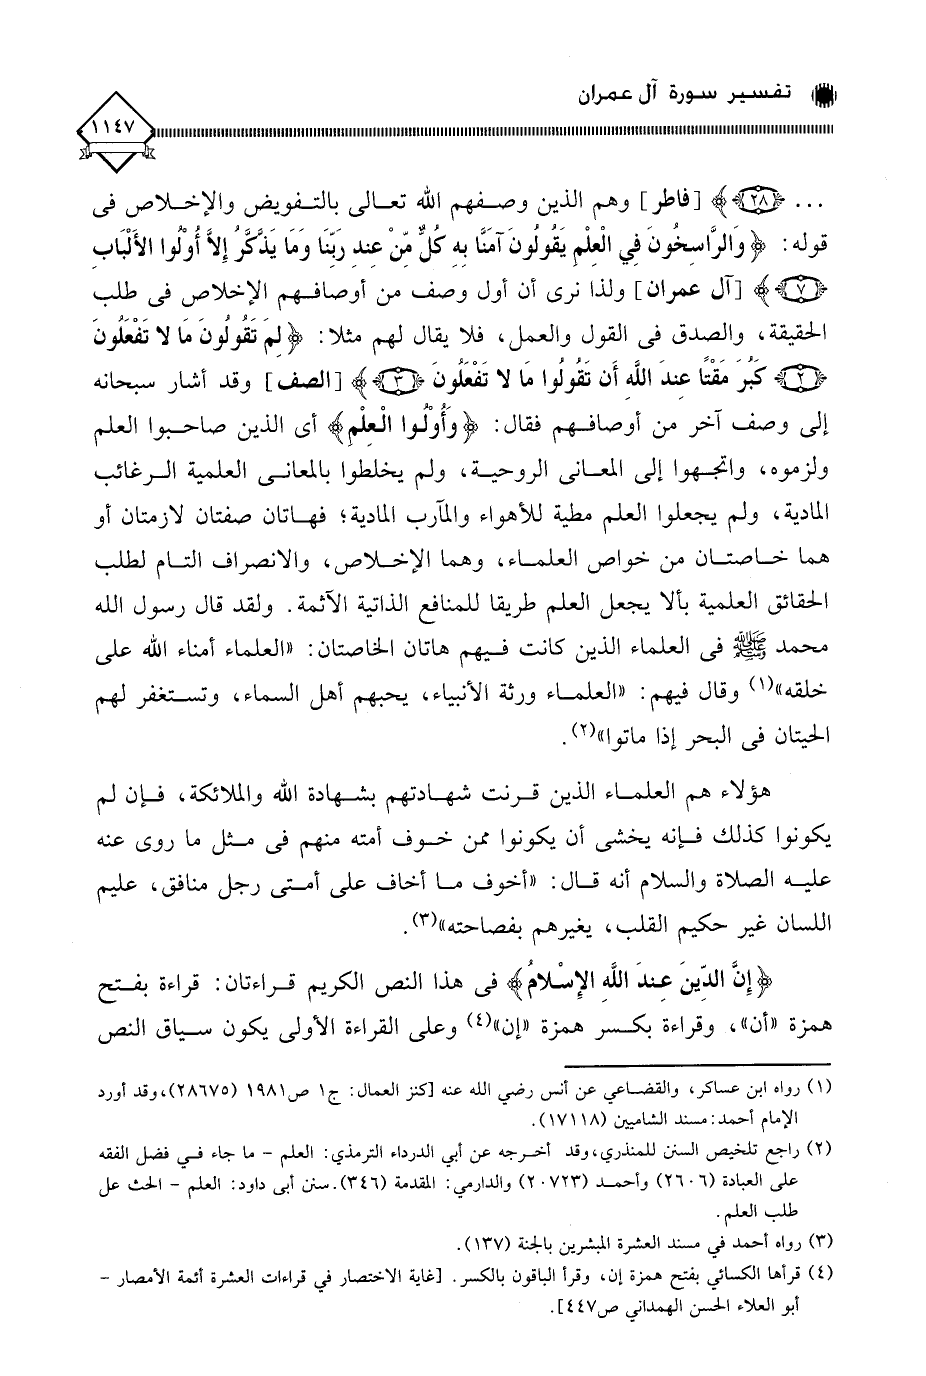 تفسير سورة آل عمران
١١٤٧
... ﴿٢٨﴾﴾ [فاطر] وهم الذين وصفهم الله تعالى بالتفويض والإخلاص فى
قوله: ﴿وَالرَّاسِخُونَ فِي الْعِلْمِ يَقُولُونَ آمَنَّا بِهِ كُلٌّ مِّنْ عِندِ رَبِّنَا وَمَا يَذَّكَّرُ إِلاَّ أُوْلُوا الأَلْبَابِ
﴿٧﴾﴾ [آل عمران] ولذا نرى أن أول وصف من أوصافهم الإخلاص فى طلب
الحقيقة، والصدق فى القول والعمل، فلا يقال لهم مثلا: ﴿لِمَ تَقُولُونَ مَا لا تَفْعَلُونَ
﴿٢﴾ كَبُرَ مَقْتًا عِندَ اللَّهِ أَن تَقُولُوا مَا لا تَفْعَلُونَ ﴿٣﴾﴾ [الصف] وقد أشار سبحانه
إلى وصف آخر من أوصافهم فقال: ﴿وَأُوْلُوا الْعِلْمِ﴾ أى الذين صاحبوا العلم
ولزموه، واتجهوا إلى المعانى الروحية، ولم يخلطوا بالمعانى العلمية الرغائب
المادية، ولم يجعلوا العلم مطية للأهواء والمآرب المادية؛ فهاتان صفتان لازمتان أو
هما خاصتان من خواص العلماء، وهما الإخلاص، والانصراف التام لطلب
الحقائق العلمية بألا يجعل العلم طريقا للمنافع الذاتية الآثمة. ولقد قال رسول الله
محمد ﷺ فى العلماء الذين كانت فيهم هاتان الخاصتان: «العلماء أمناء الله على
خلقه»(١) وقال فيهم: «العلماء ورثة الأنبياء، يحبهم أهل السماء، وتستغفر لهم
الحيتان فى البحر إذا ماتوا»(٢).
هؤلاء هم العلماء الذين قرنت شهادتهم بشهادة الله والملائكة، فإن لم
يكونوا كذلك فإنه يخشى أن يكونوا ممن خوف أمته منهم فى مثل ما روى عنه
عليه الصلاة والسلام أنه قال: «أخوف ما أخاف على أمتى رجل منافق، عليم
اللسان غير حكيم القلب، يغيرهم بفصاحته»(٣).
﴿إِنَّ الدِّينَ عِندَ اللَّهِ الإِسْلامُ﴾ فى هذا النص الكريم قراءتان: قراءة بفتح
همزة «أن»، وقراءة بكسر همزة «إن»(٤) وعلى القراءة الأولى يكون سياق النص
(١) رواه ابن عساكر، والقضاعي عن أنس رضي الله عنه [كنز العمال: ج١ ص١٩٨١ (٢٨٦٧٥)، وقد أورد
الإمام أحمد: مسند الشاميين (١٧١١٨).
(٢) راجع تلخيص السنن للمنذري، وقد أخرجه عن أبي الدرداء الترمذي: العلم - ما جاء في فضل الفقه
على العبادة (٢٦٠٦) وأحمد (٢٠٧٢٣) والدارمي: المقدمة (٣٤٦). سنن أبى داود: العلم - الحث عل
طلب العلم.
(٣) رواه أحمد في مسند العشرة المبشرين بالجنة (١٣٧).
(٤) قرأها الكسائي بفتح همزة إن، وقرأ الباقون بالكسر. [غاية الاختصار في قراءات العشرة أئمة الأمصار -
أبو العلاء الحسن الهمداني ص٤٤٧].